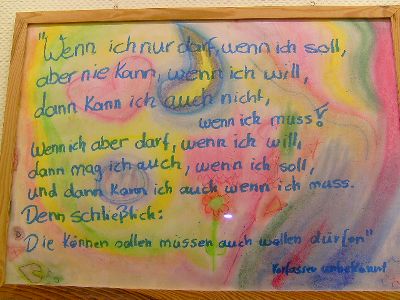 "Wenn ich nur darf, wenn ich soll,
aber nie kann, wenn ich will,
dann kann ich auch nicht,
wenn ich muss!
Wenn ich aber darf, wenn ich will,
dann mag ich auch, wenn ich soll,
und dann kann ich auch wenn ich muss.
Denn schließlich:
Die können sollen müssen auch wollen dürfen"
Verfasser unbekannt